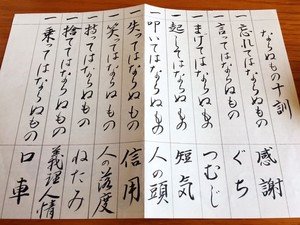 ならぬもの十訓
一 忘れてはならぬもの 感謝
一 言ってはならぬもの ぐち
一 まげてはならぬもの つむじ
一 起してはならぬもの 短気
一 叩いてはならぬもの 人の頭
一 失ってはならぬもの 信用
一 笑ってはならぬもの 人の落度
一 持ってはならぬもの ねたみ
一 捨ててはならぬもの 義理人情
一 乗ってはならぬもの 口車